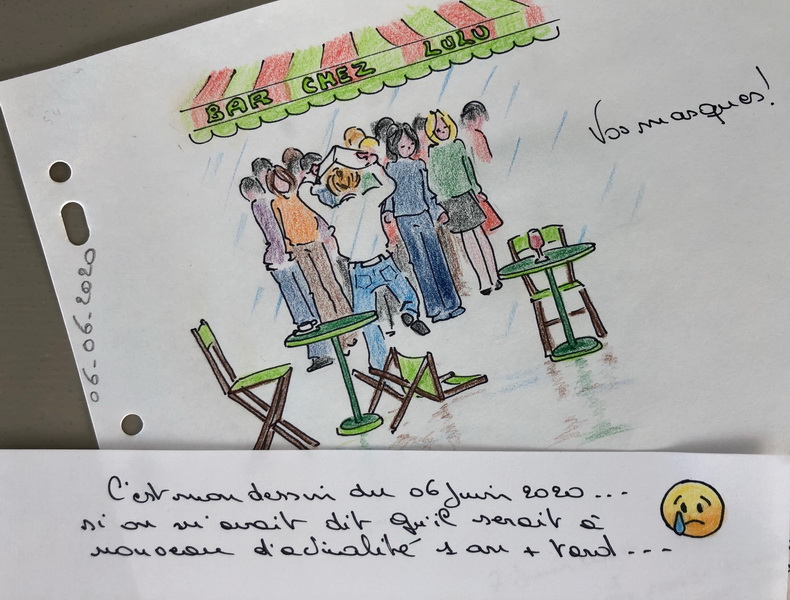 BAR CHEZ LULU
Vos masques!
06-06-2020
C'est mon dessin du 06 Juin 2020...
si on m'avait dit qu'il serait à
nouveau d'actualité 1 an + tard...